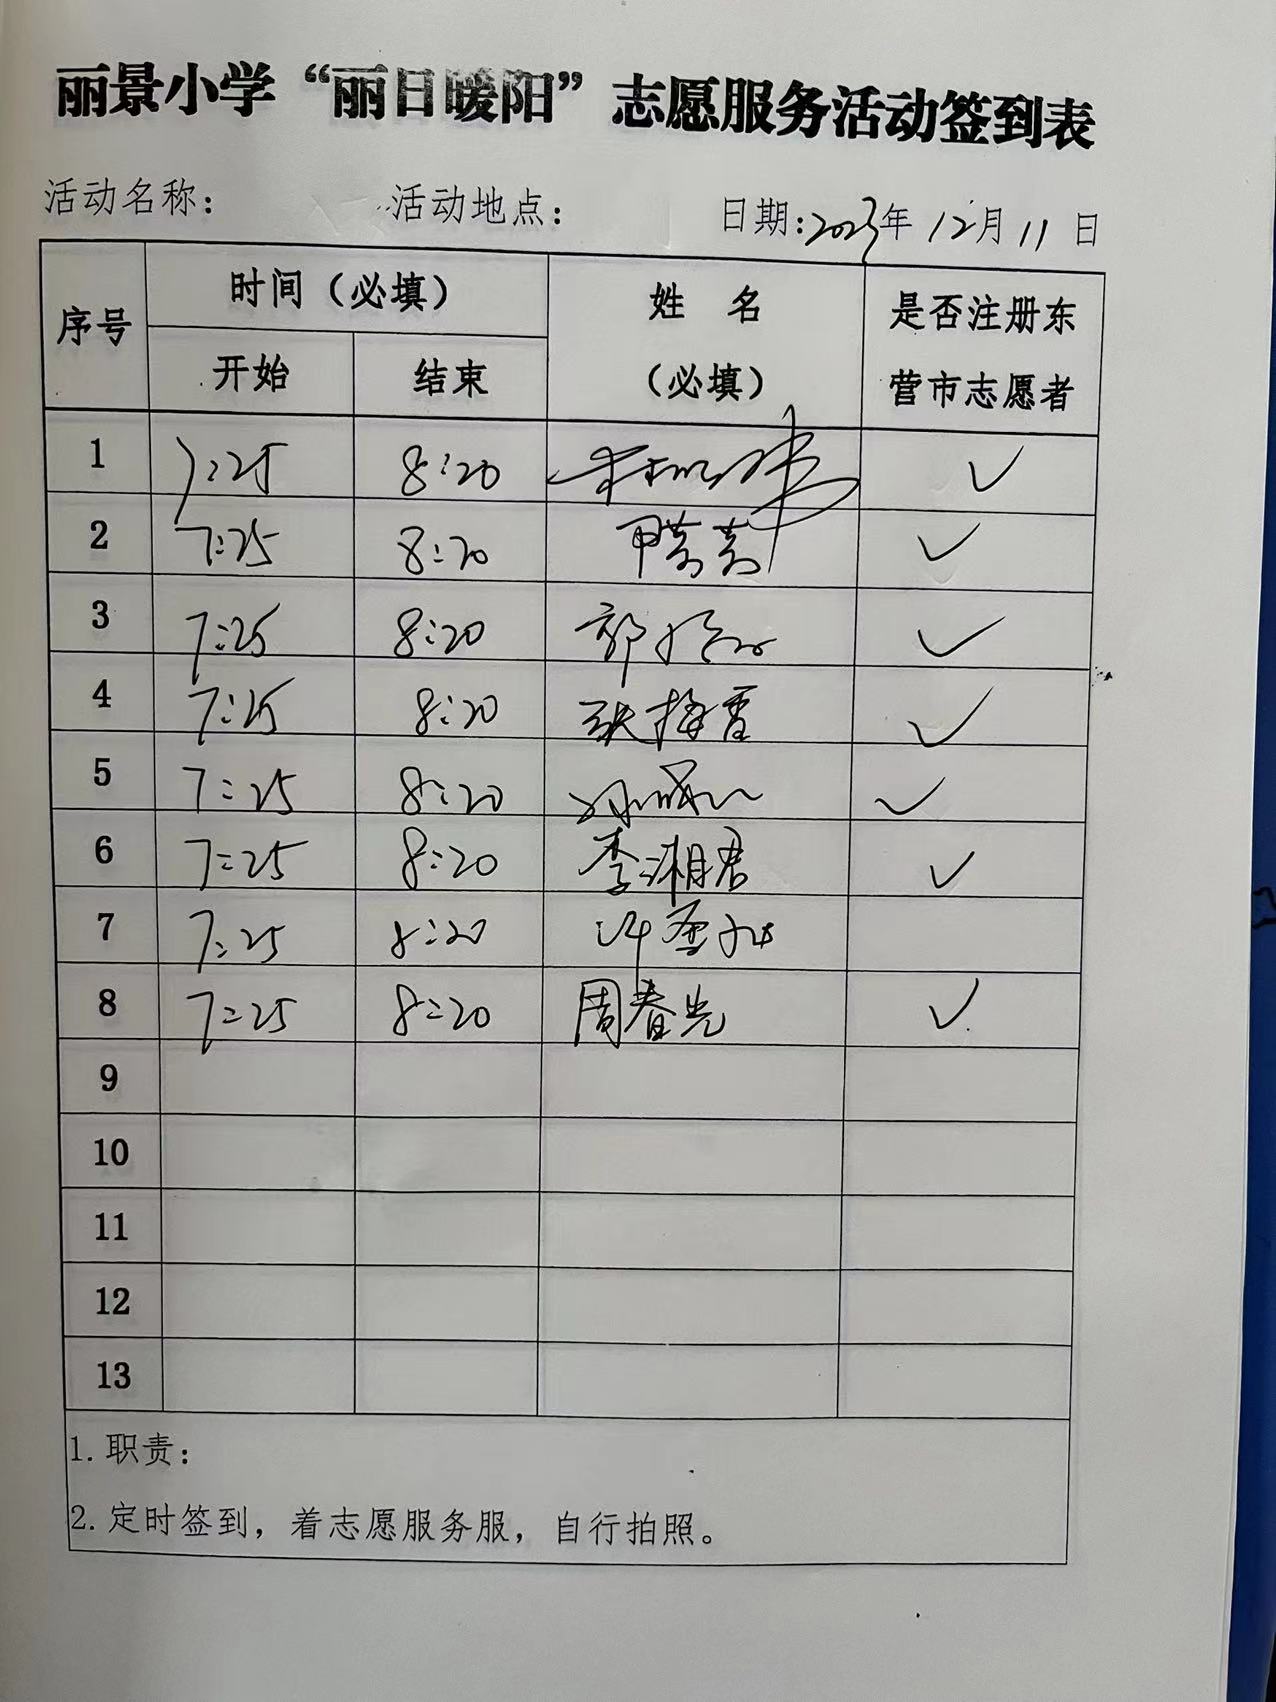 丽景小学“丽日暖阳”志愿服务活动签到表
活动名称： 活动地点： 日期:2023年12月11日
序号 时间（必填） 姓 名 （必填） 是否注册东营市志愿者
开始 结束
1 7:25 8:20 ✓
2 7:25 8:20 ✓
3 7:25 8:20 郭 ✓
4 7:25 8:20 张梅香 ✓
5 7:25 8:20 ✓
6 7:25 8:20 李湘君 ✓
7 7:25 8:20
8 7:25 8:20 周春光 ✓
9
10
11
12
13
1.职责：
2.定时签到，着志愿服务服，自行拍照。